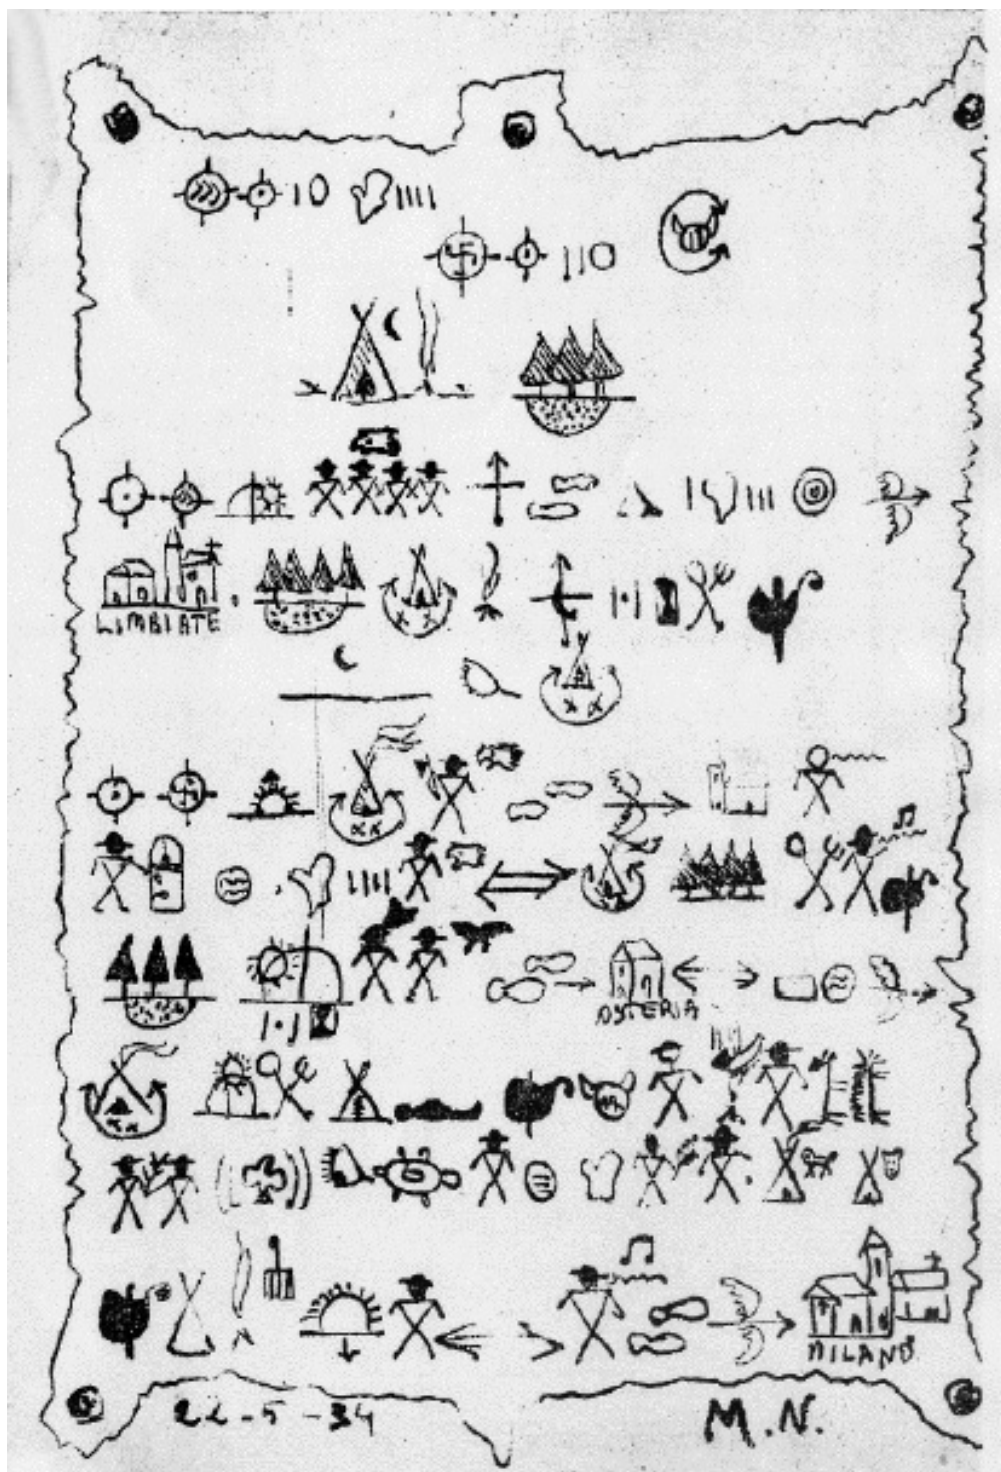 10 IIII
110
LIMBIATE
OSTERIA
MILANO
22-5-34 M.N.